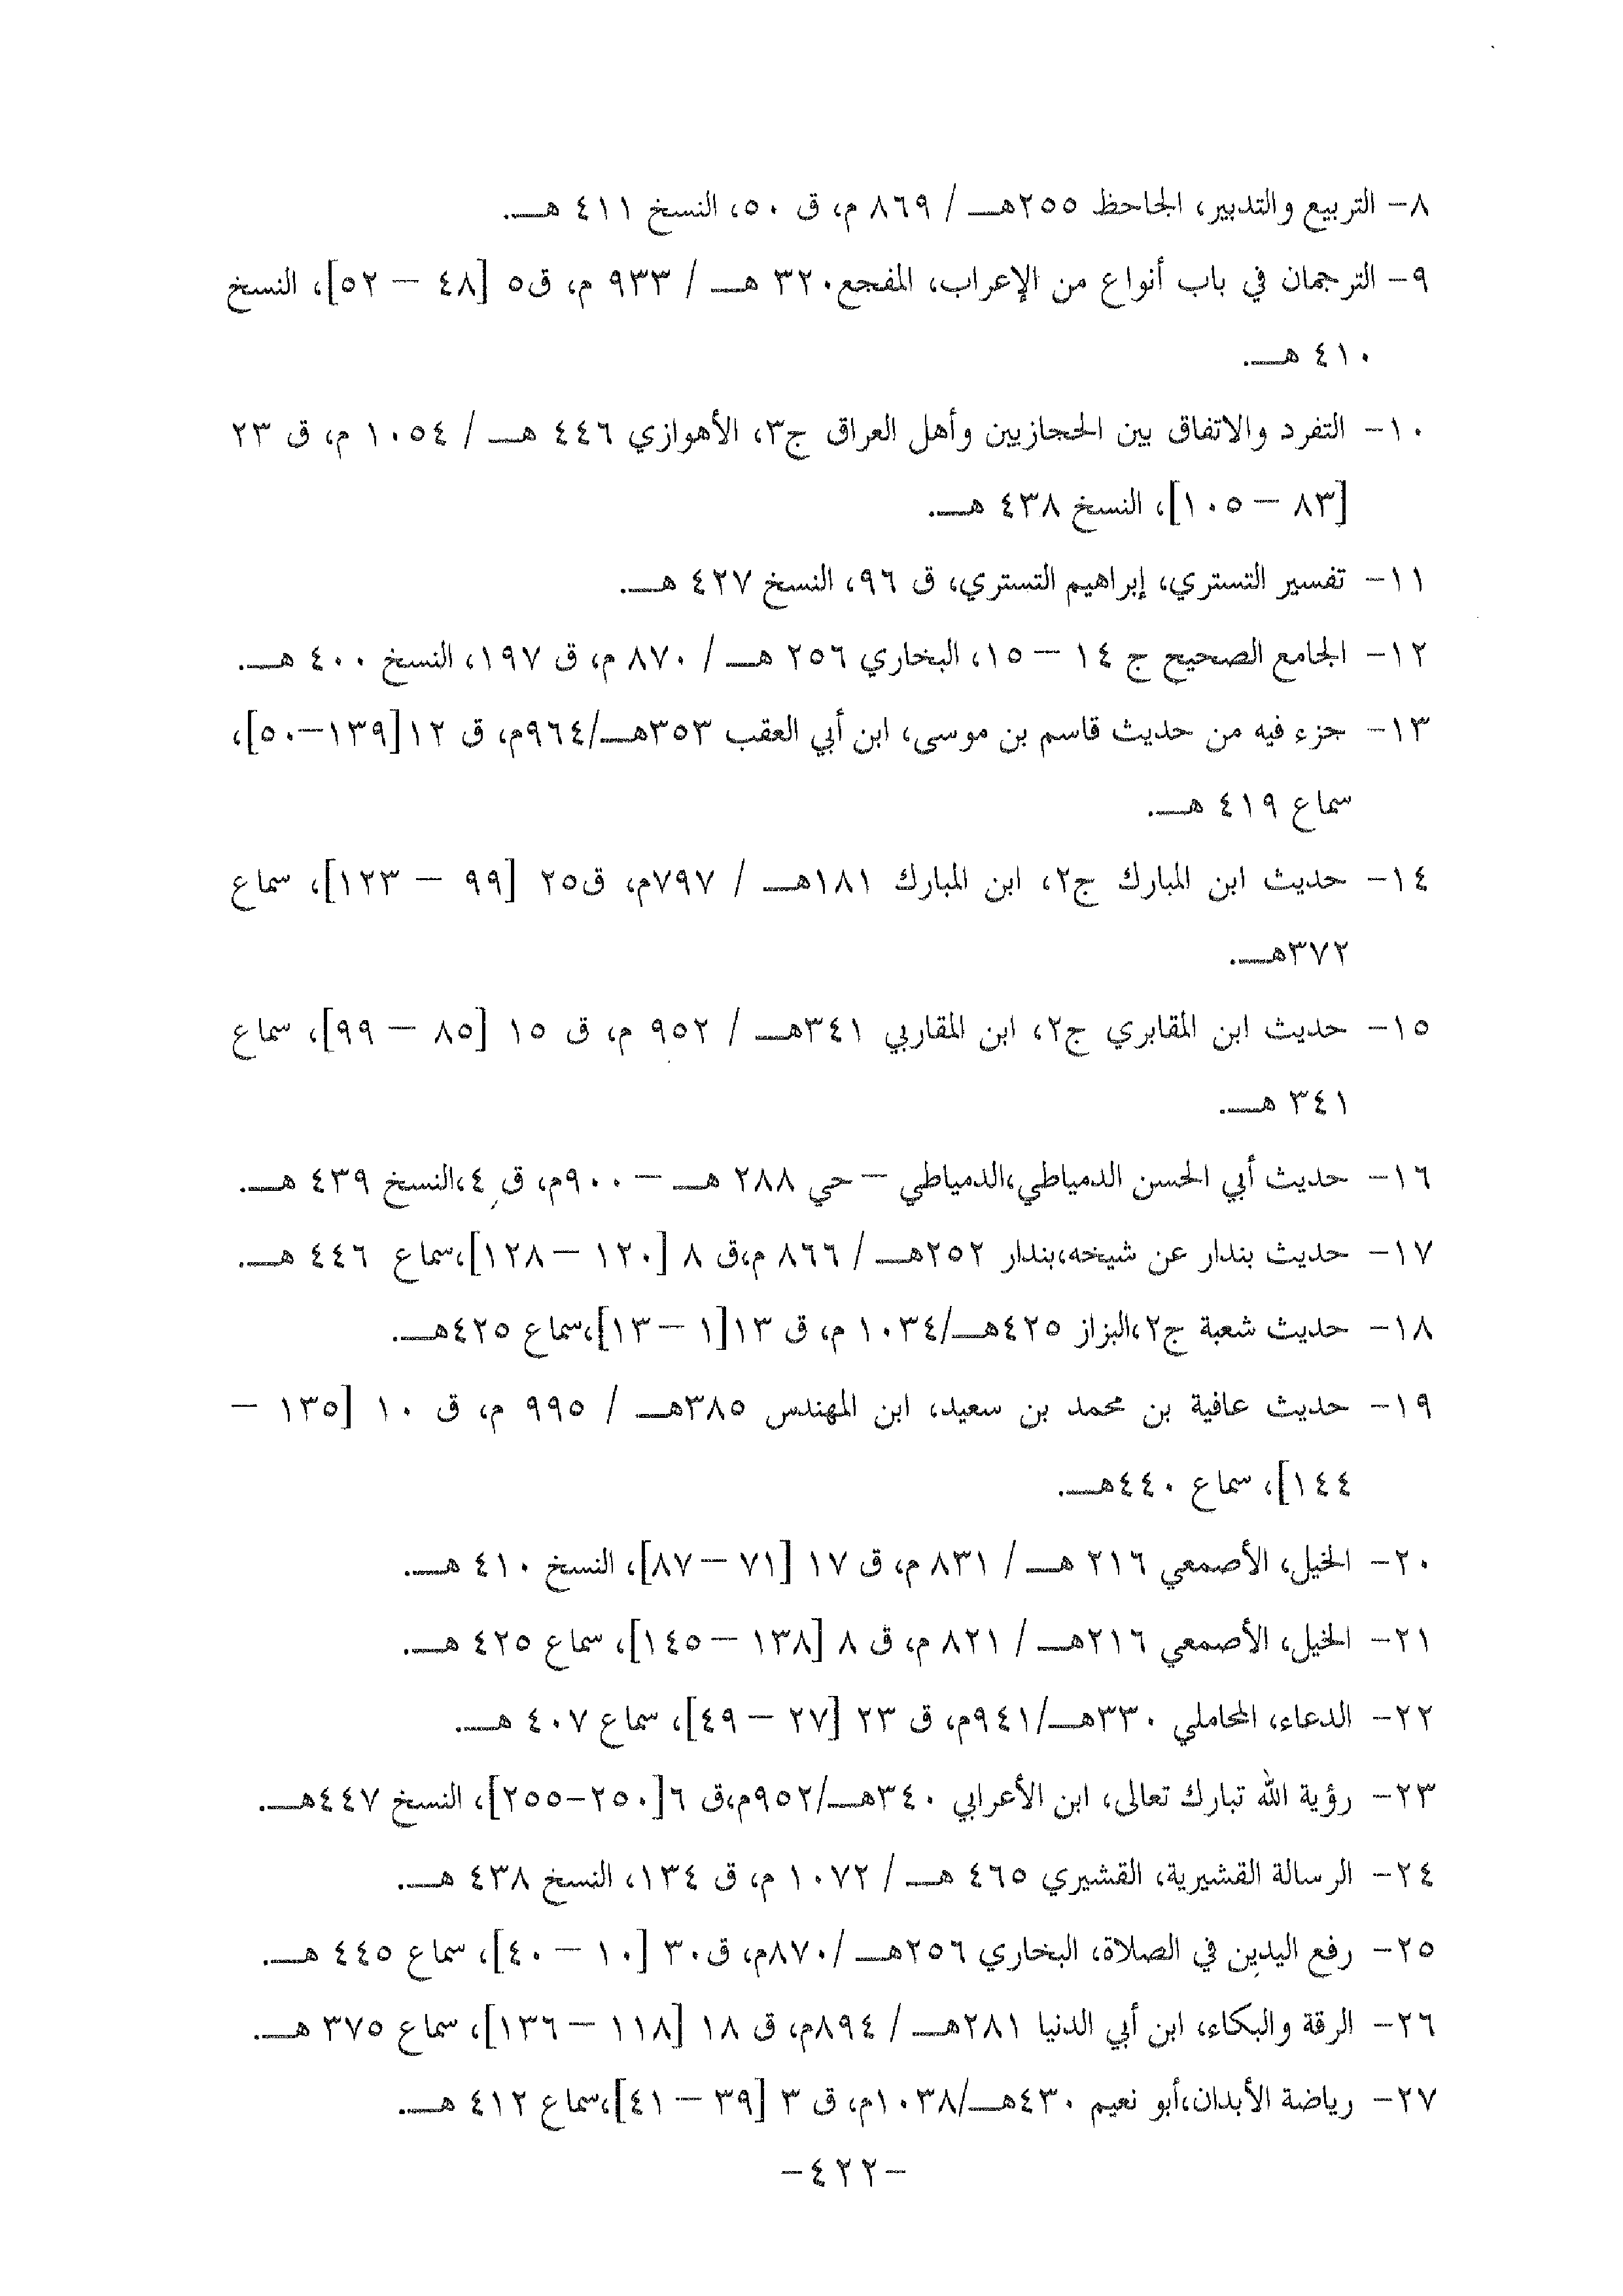 ٨- التربيع والتدبير، الجاحظ ٢٥٥هـ / ٨٦٩ م، ق ٥٠، النسخ ٤١١ هـ.
٩- الترجمان في باب أنواع من الإعراب، المفجع٣٢٠ هـ / ٩٣٣ م، ق٥ [٤٨ – ٥٢]، النسخ
٤١٠ هـ.
١٠- التفرد والاتفاق بين الحجازيين وأهل العراق ج٣، الأهوازي ٤٤٦ هـ / ١٠٥٤ م، ق ٢٣
[٨٣ – ١٠٥]، النسخ ٤٣٨ هـ.
١١- تفسير التستري، إبراهيم التستري، ق ٩٦، النسخ ٤٢٧ هـ.
١٢- الجامع الصحيح ج ١٤ – ١٥، البخاري ٢٥٦ هـ / ٨٧٠ م، ق ١٩٧، النسخ ٤٠٠ هـ.
١٣- جزء فيه من حديث قاسم بن موسى، ابن أبي العقب ٣٥٣هـ/٩٦٤م، ق ١٢[١٣٩–٥٠]،
سماع ٤١٩ هـ.
١٤- حديث ابن المبارك ج٢، ابن المبارك ١٨١هـ / ٧٩٧م، ق٢٥ [٩٩ – ١٢٣]، سماع
٣٧٢هـ.
١٥- حديث ابن المقابري ج٢، ابن المقاربي ٣٤١هـ / ٩٥٢ م، ق ١٥ [٨٥ – ٩٩]، سماع
٣٤١ هـ.
١٦- حديث أبي الحسن الدمياطي،الدمياطي – حي ٢٨٨ هـ – ٩٠٠م، ق ٤،النسخ ٤٣٩ هـ.
١٧- حديث بندار عن شيخه،بندار ٢٥٢هـ / ٨٦٦ م،ق ٨ [١٢٠ – ١٢٨]،سماع ٤٤٦ هـ.
١٨- حديث شعبة ج٢،البزاز ٤٢٥هـ/١٠٣٤ م، ق ١٣[١ – ١٣]،سماع ٤٢٥هـ.
١٩- حديث عافية بن محمد بن سعيد، ابن المهندس ٣٨٥هـ / ٩٩٥ م، ق ١٠ [١٣٥ –
١٤٤]، سماع ٤٤٠هـ.
٢٠- الخيل، الأصمعي ٢١٦ هـ / ٨٣١ م، ق ١٧ [٧١ – ٨٧]، النسخ ٤١٠ هـ.
٢١- الخيل، الأصمعي ٢١٦هـ / ٨٢١ م، ق ٨ [١٣٨ – ١٤٥]، سماع ٤٢٥ هـ.
٢٢- الدعاء، المحاملي ٣٣٠هـ/٩٤١م، ق ٢٣ [٢٧ – ٤٩]، سماع ٤٠٧ هـ.
٢٣- رؤية الله تبارك تعالى، ابن الأعرابي ٣٤٠هـ/٩٥٢م،ق ٦[٢٥٠–٢٥٥]، النسخ ٤٤٧هـ.
٢٤- الرسالة القشيرية، القشيري ٤٦٥ هـ / ١٠٧٢ م، ق ١٣٤، النسخ ٤٣٨ هـ.
٢٥- رفع اليدين في الصلاة، البخاري ٢٥٦هـ /٨٧٠م، ق٣٠ [١٠ – ٤٠]، سماع ٤٤٥ هـ.
٢٦- الرقة والبكاء، ابن أبي الدنيا ٢٨١هـ / ٨٩٤م، ق ١٨ [١١٨ – ١٣٦]، سماع ٣٧٥ هـ.
٢٧- رياضة الأبدان،أبو نعيم ٤٣٠هـ/١٠٣٨م، ق ٣ [٣٩ – ٤١]،سماع ٤١٢ هـ.
-٤٢٢-